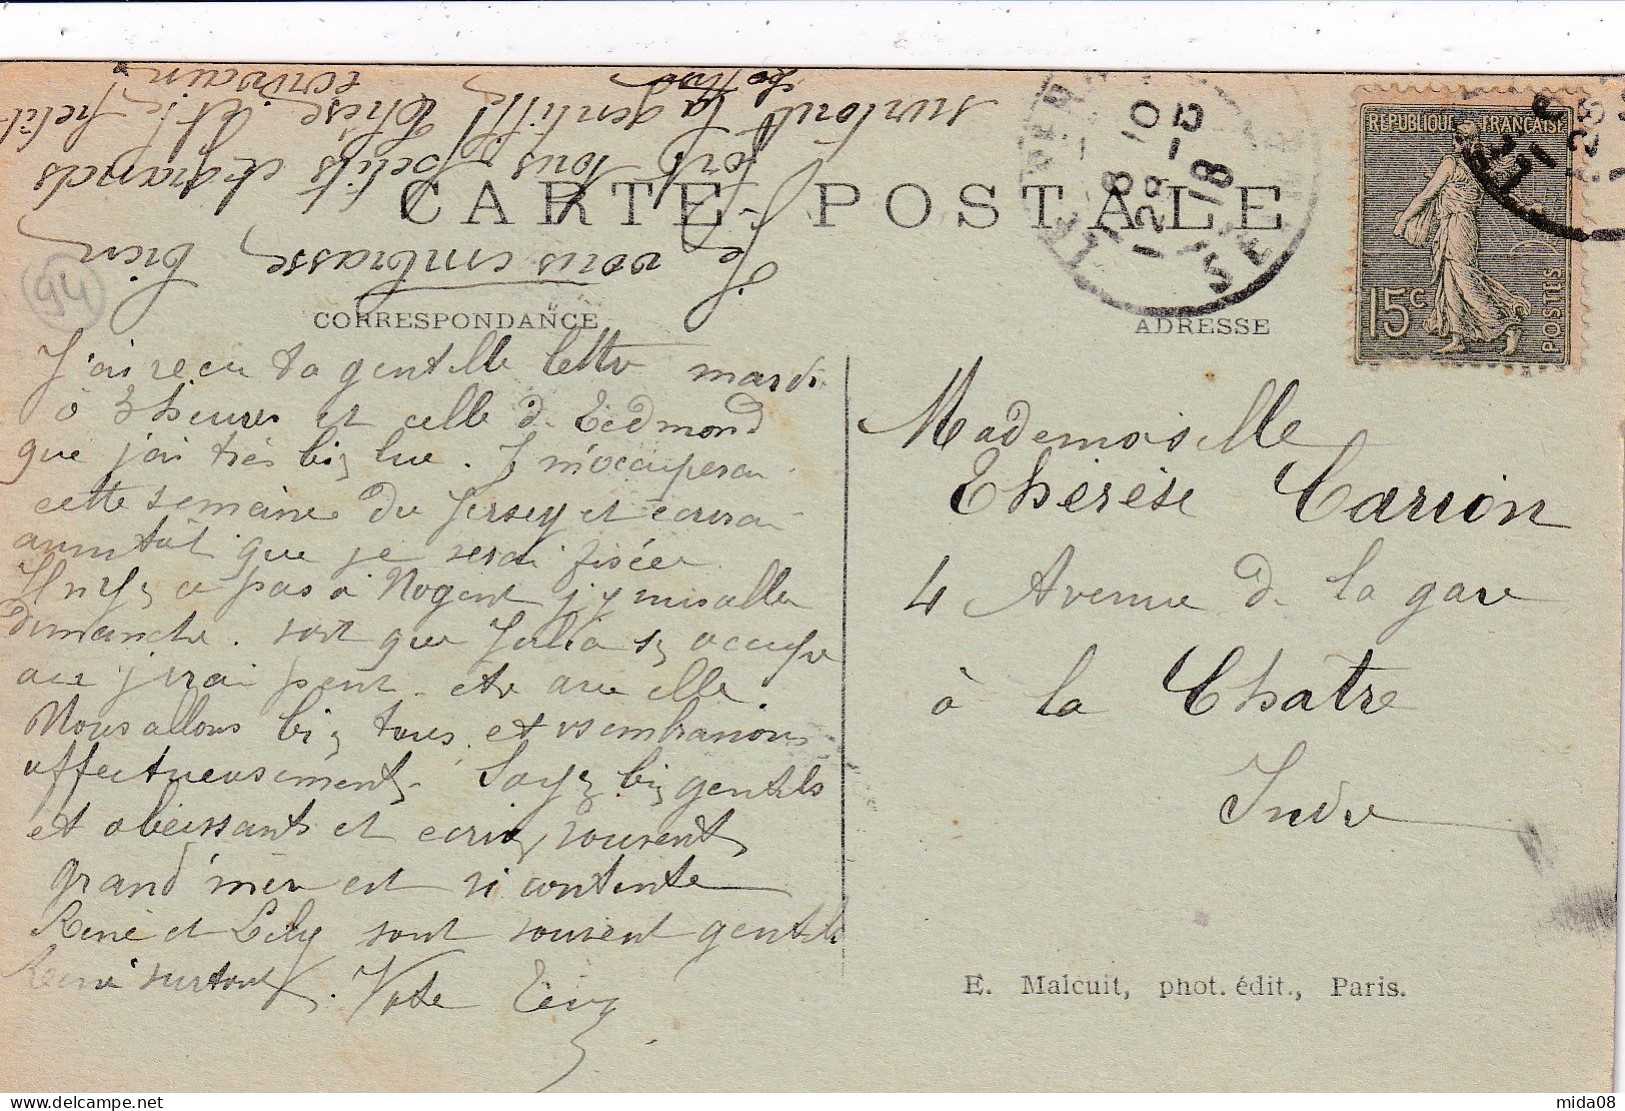 CARTE POSTALE
CORRESPONDANCE
ADRESSE
REPUBLIQUE FRANÇAISE
15c
POSTES
94
J'ai recu ta gentille lettre mardi
à 3 heures et celle d'Edmond
que j'ai très bien lue. Je m'occuperai
cette semaine du Jersey et écrirai
aussitôt que je serai fixée
Il n'y en a pas à Nogent j'y suis allée
Dimanche. soit que Julia s'en occupe
ou j'irai peut-être avec elle
Nous allons bien tous et vs embrassons
affectueusement. Soyez bien gentils
et obeissants et ecrivez souvent
grand'mère est si contente
René et Lily sont souvent gentils
René surtout. Votre
Je vous embrasse bien
fort tous petits et grands
surtout la gentille Thérèse et le petit
écrivain
Mademoiselle
Thérèse Carrion
4 Avenue de la gare
à la Châtre
Indre
E. Malcuit, phot. édit., Paris.
mida08